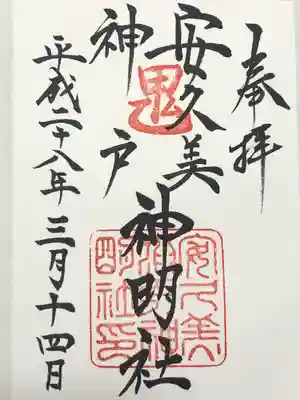 奉拝
安久美
神戸
神明社
平成二十八年三月十四日
鬼
安久美神戸神明社印